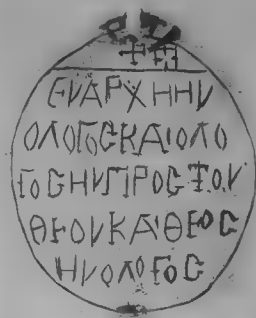 ЄΝΑΡΧΗΗΝ
ΟΛΟΓΟϹΚΑΙΟΛΟ
ΓΟϹΗΝΠΡΟϹΤΟΝ
ΘΕΟΝΚΑΙΘΕΟϹ
ΗΝΟΛΟΓΟϹ